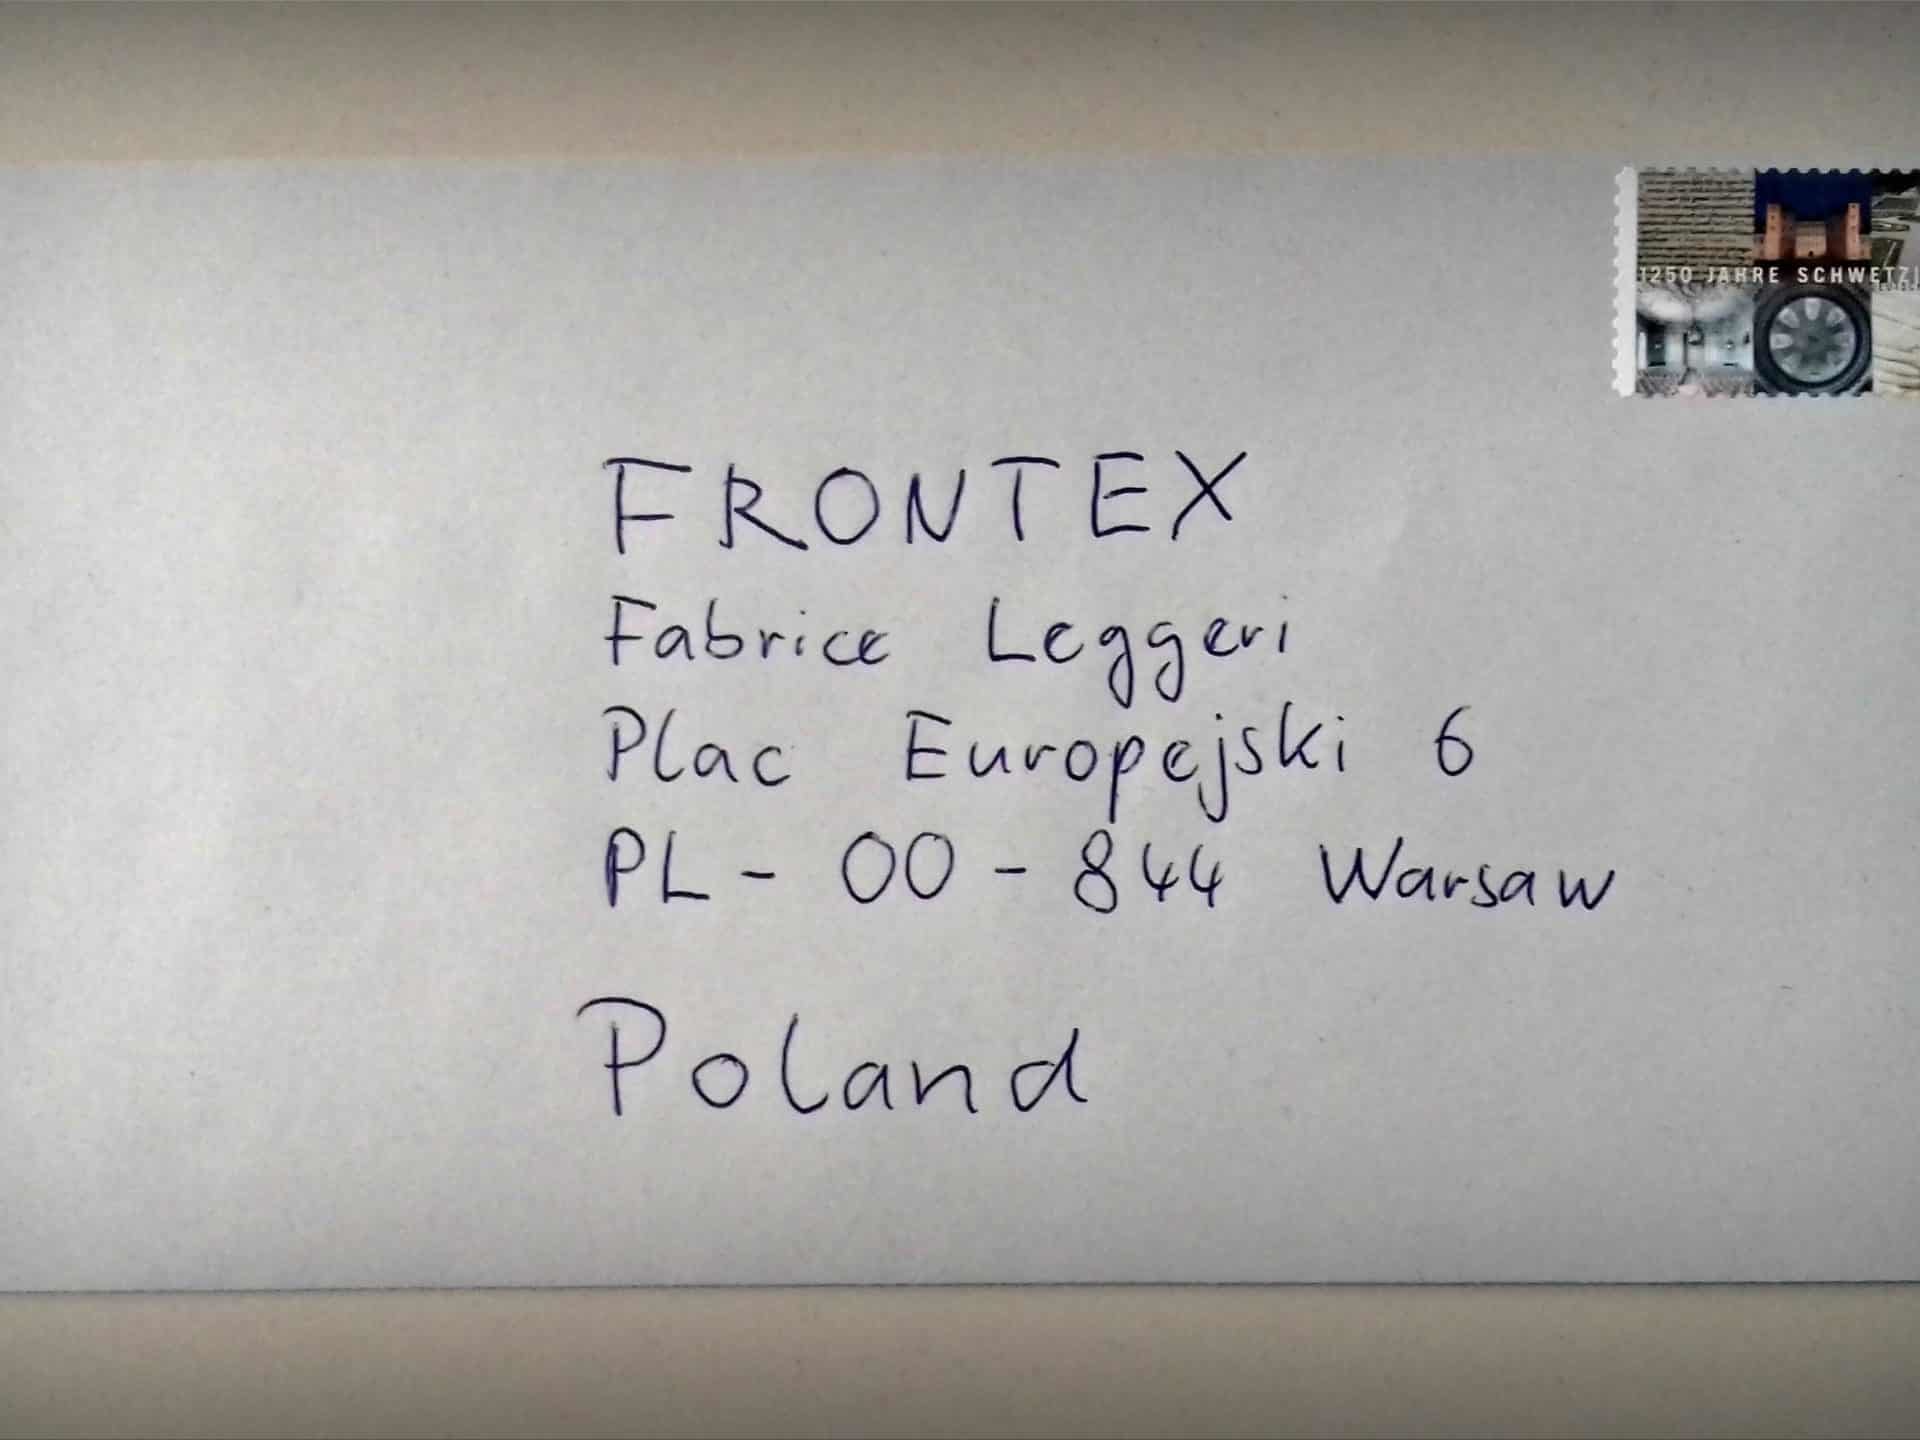 1250 JAHRE SCHWETZI
DEUTSCH
FRONTEX
Fabrice Leggeri
Plac Europejski 6
PL - 00 - 844 Warsaw
Poland